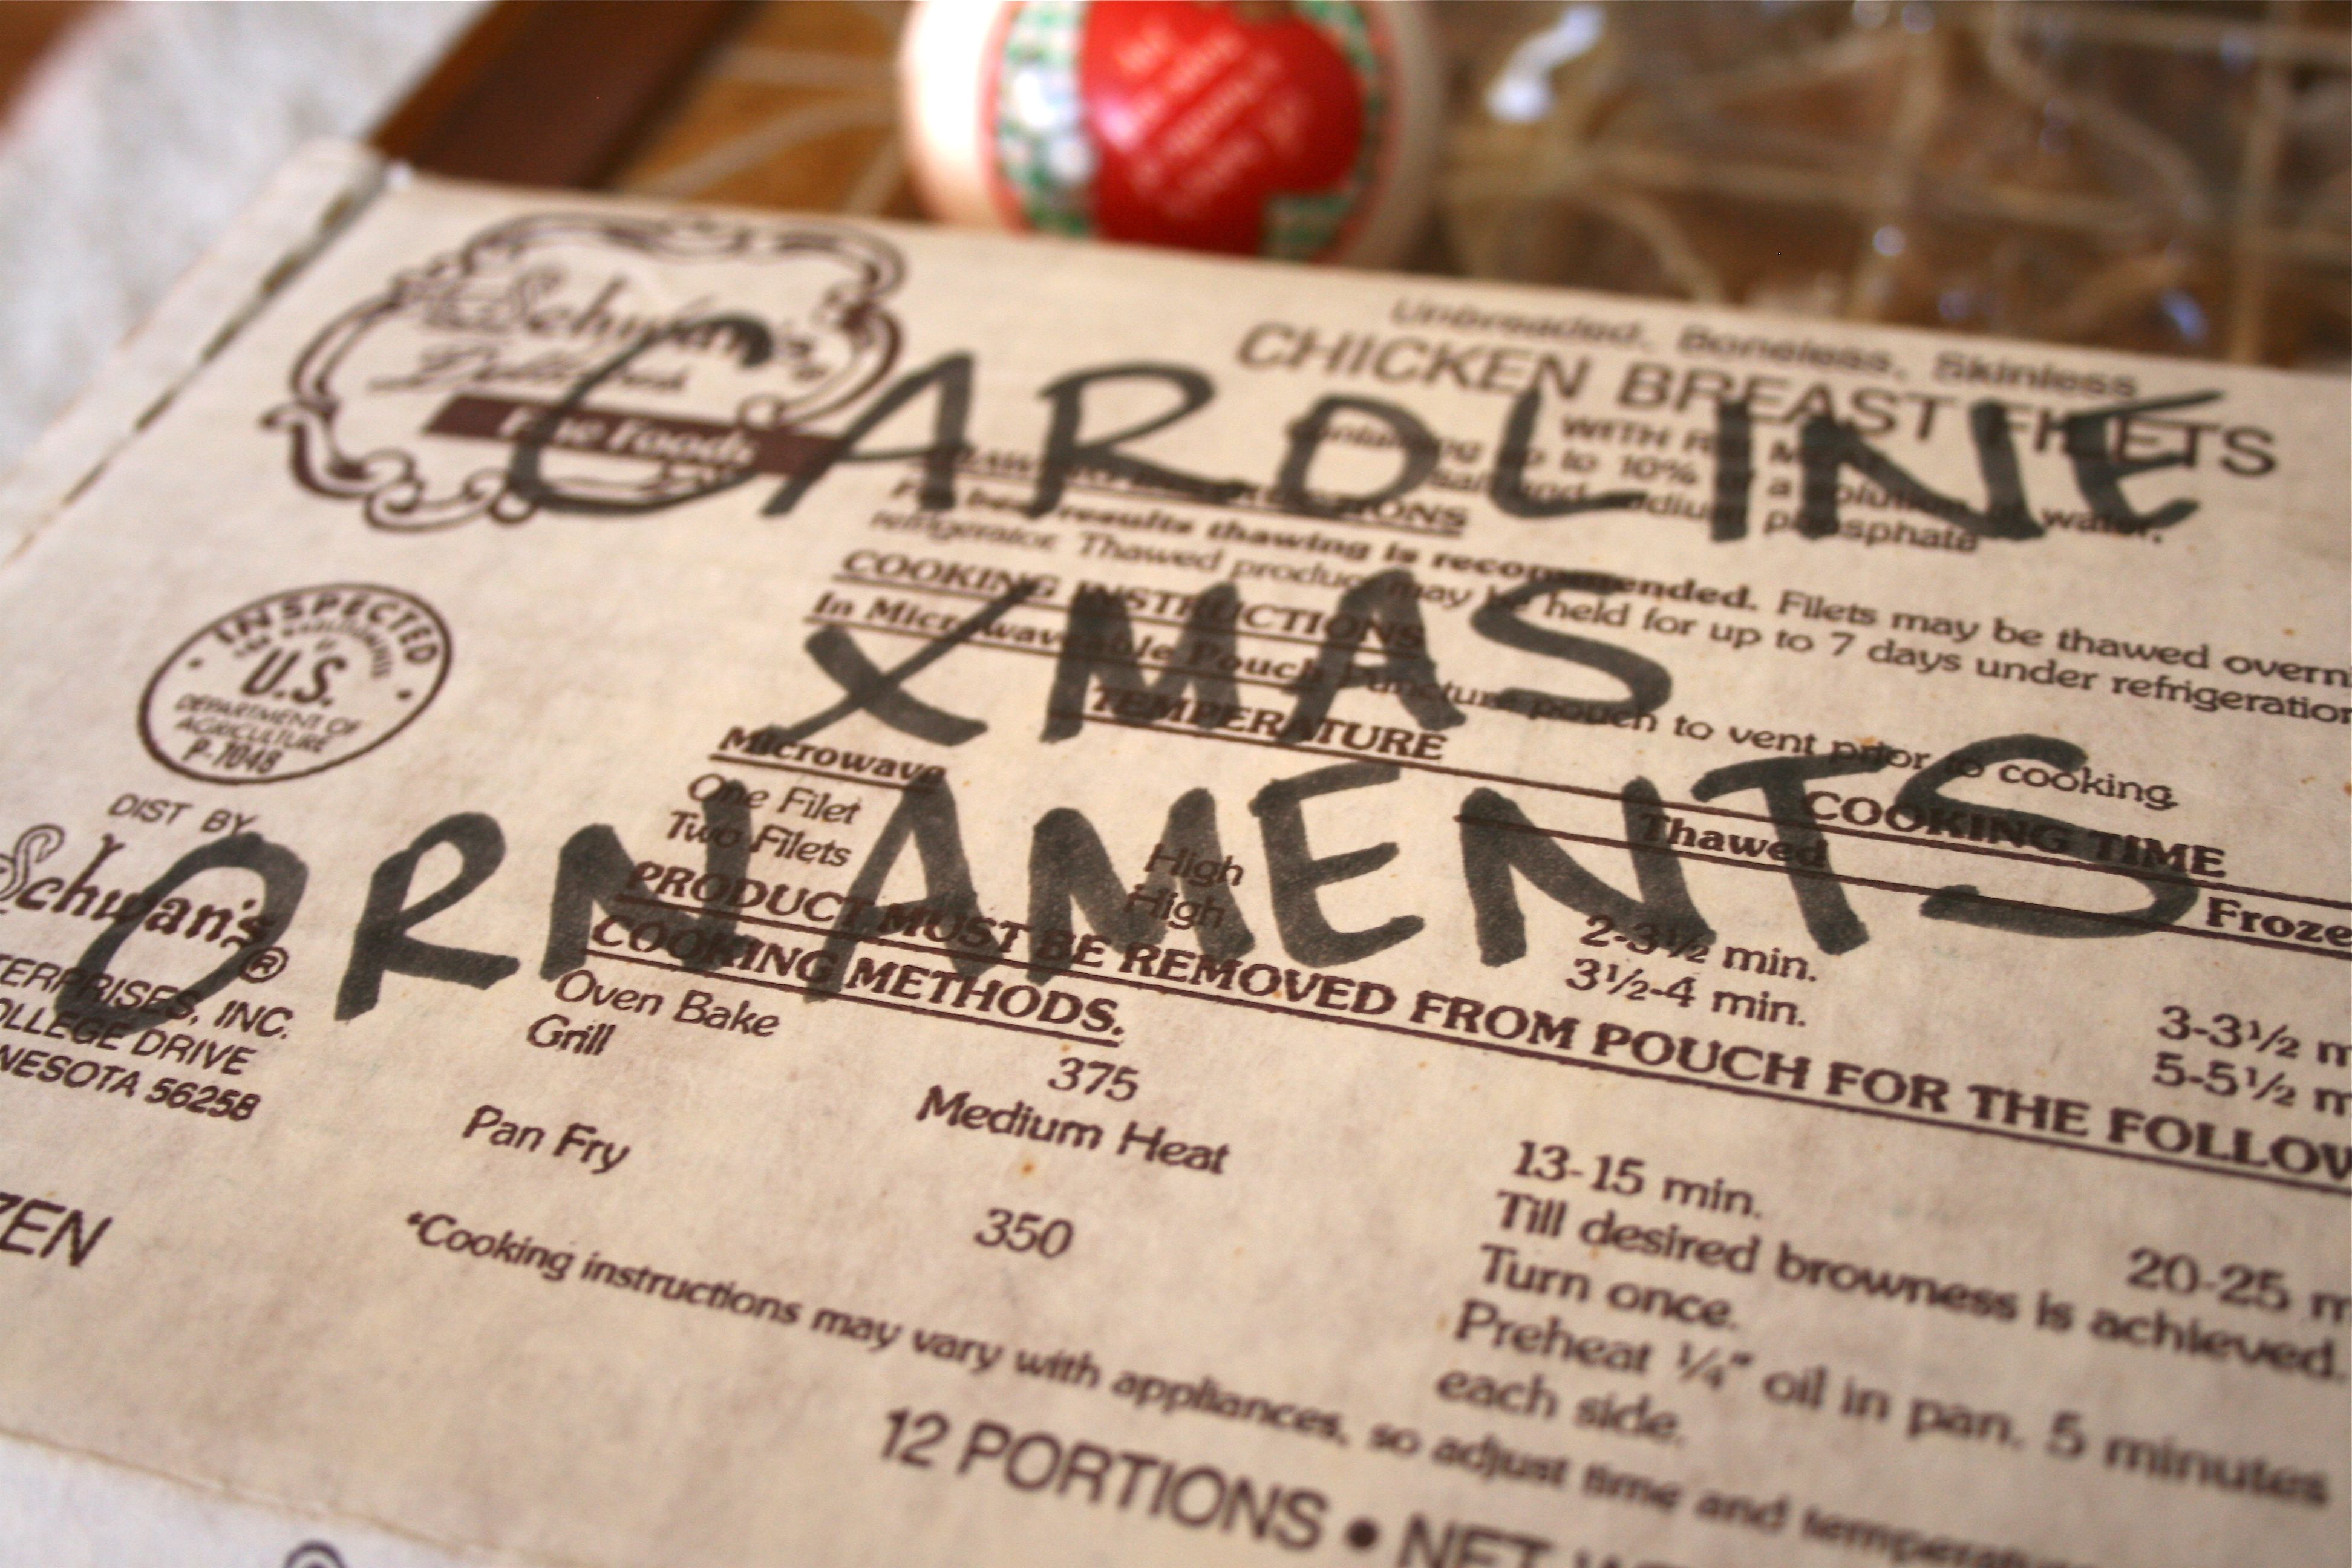 CAROLINE
XMAS
ORNAMENTS
Schwan's
Fine Foods
Unbreaded, Boneless, Skinless
CHICKEN BREAST FILETS
WITH
up to 10% of a solution of water,
and sodium phosphate
For best results thawing is recommended. Filets may be thawed overn
refrigerator. Thawed product may be held for up to 7 days under refrigeration
COOKING INSTRUCTIONS
In Microwaveable Pouch Puncture pouch to vent prior to cooking.
TEMPERATURE COOKING TIME
Microwave Thawed Froze
One Filet High 2-3½ min. 3-3½ m
Two Filets High 3½-4 min. 5-5½ m
PRODUCT MUST BE REMOVED FROM POUCH FOR THE FOLLOW
COOKING METHODS.
Oven Bake 375 13-15 min. 20-25 m
Grill Medium Heat Till desired browness is achieved.
Turn once.
Pan Fry 350 Preheat ¼" oil in pan. 5 minutes
each side.
*Cooking instructions may vary with appliances, so adjust time and temperatu
12 PORTIONS • NET
INSPECTED
U.S.
DEPARTMENT OF
AGRICULTURE
P-1048
DIST BY
Schwan's®
TERPRISES, INC.
OLLEGE DRIVE
NESOTA 56258
ZEN